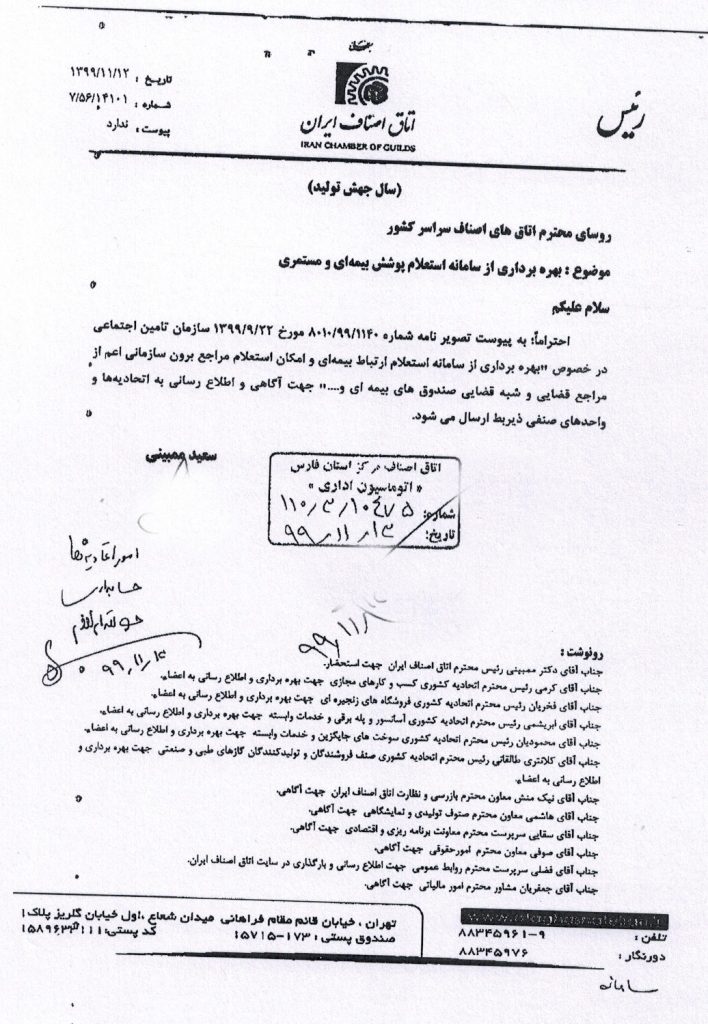 بسمه‌تعالی
تاریخ : ۱۳۹۹/۱۱/۱۲
شماره : ۷/۵۶/۱۴۱۰۱
پیوست : ندارد
اتاق اصناف ایران
IRAN CHAMBER OF GUILDS
رئیس
(سال جهش تولید)
روسای محترم اتاق های اصناف سراسر کشور
موضوع : بهره برداری از سامانه استعلام پوشش بیمه‌ای و مستمری
سلام علیکم
احتراماً؛ به پیوست تصویر نامه شماره ۸۰۱۰/۹۹/۱۱۴۰ مورخ ۱۳۹۹/۹/۲۲ سازمان تامین اجتماعی
در خصوص "بهره برداری از سامانه استعلام ارتباط بیمه‌ای و امکان استعلام مراجع برون سازمانی اعم از
مراجع قضایی و شبه قضایی صندوق های بیمه ای و...." جهت آگاهی و اطلاع رسانی به اتحادیه‌ها و
واحدهای صنفی ذیربط ارسال می شود.
سعید ممبینی
اتاق اصناف مرکز استان فارس
« اتوماسیون اداری »
شماره: ۱۱۰/۳/۱۰۴۷۵
تاریخ: ۹۹/۱۱/۱۳
امور اتحادیه ها
۹۹/۱۱/۱۴
رونوشت :
جناب آقای دکتر ممبینی رئیس محترم اتاق اصناف ایران جهت استحضار.
جناب آقای کرمی رئیس محترم اتحادیه کشوری کسب و کارهای مجازی جهت بهره برداری و اطلاع رسانی به اعضاء.
جناب آقای فخریان رئیس محترم اتحادیه کشوری فروشگاه های زنجیره ای جهت بهره برداری و اطلاع رسانی به اعضاء.
جناب آقای ابریشمی رئیس محترم اتحادیه کشوری آسانسور و پله برقی و خدمات وابسته جهت بهره برداری و اطلاع رسانی به اعضاء.
جناب آقای محمودیان رئیس محترم اتحادیه کشوری سوخت های جایگزین و خدمات وابسته جهت بهره برداری و اطلاع رسانی به اعضاء.
جناب آقای کلانتری طالقانی رئیس محترم اتحادیه کشوری صنف فروشندگان و تولیدکنندگان گازهای طبی و صنعتی جهت بهره برداری و
اطلاع رسانی به اعضاء.
جناب آقای نیک منش معاون محترم بازرسی و نظارت اتاق اصناف ایران جهت آگاهی.
جناب آقای هاشمی معاون محترم صنوف تولیدی و نمایشگاهی جهت آگاهی.
جناب آقای سقایی سرپرست محترم معاونت برنامه ریزی و اقتصادی جهت آگاهی.
جناب آقای صوفی معاون محترم امورحقوقی جهت آگاهی.
جناب آقای فضلی سرپرست محترم روابط عمومی جهت اطلاع رسانی و بارگذاری در سایت اتاق اصناف ایران.
جناب آقای جعفریان مشاور محترم امور مالیاتی جهت آگاهی.
تلفن : ۸۸۳۴۵۹۶۱-۹
دورنگار : ۸۸۳۴۵۹۷۶
تهران ، خیابان قائم مقام فراهانی میدان شعاع ،اول خیابان گلریز پلاک۱
صندوق پستی : ۱۷۳-۱۵۷۱۵
سامانه